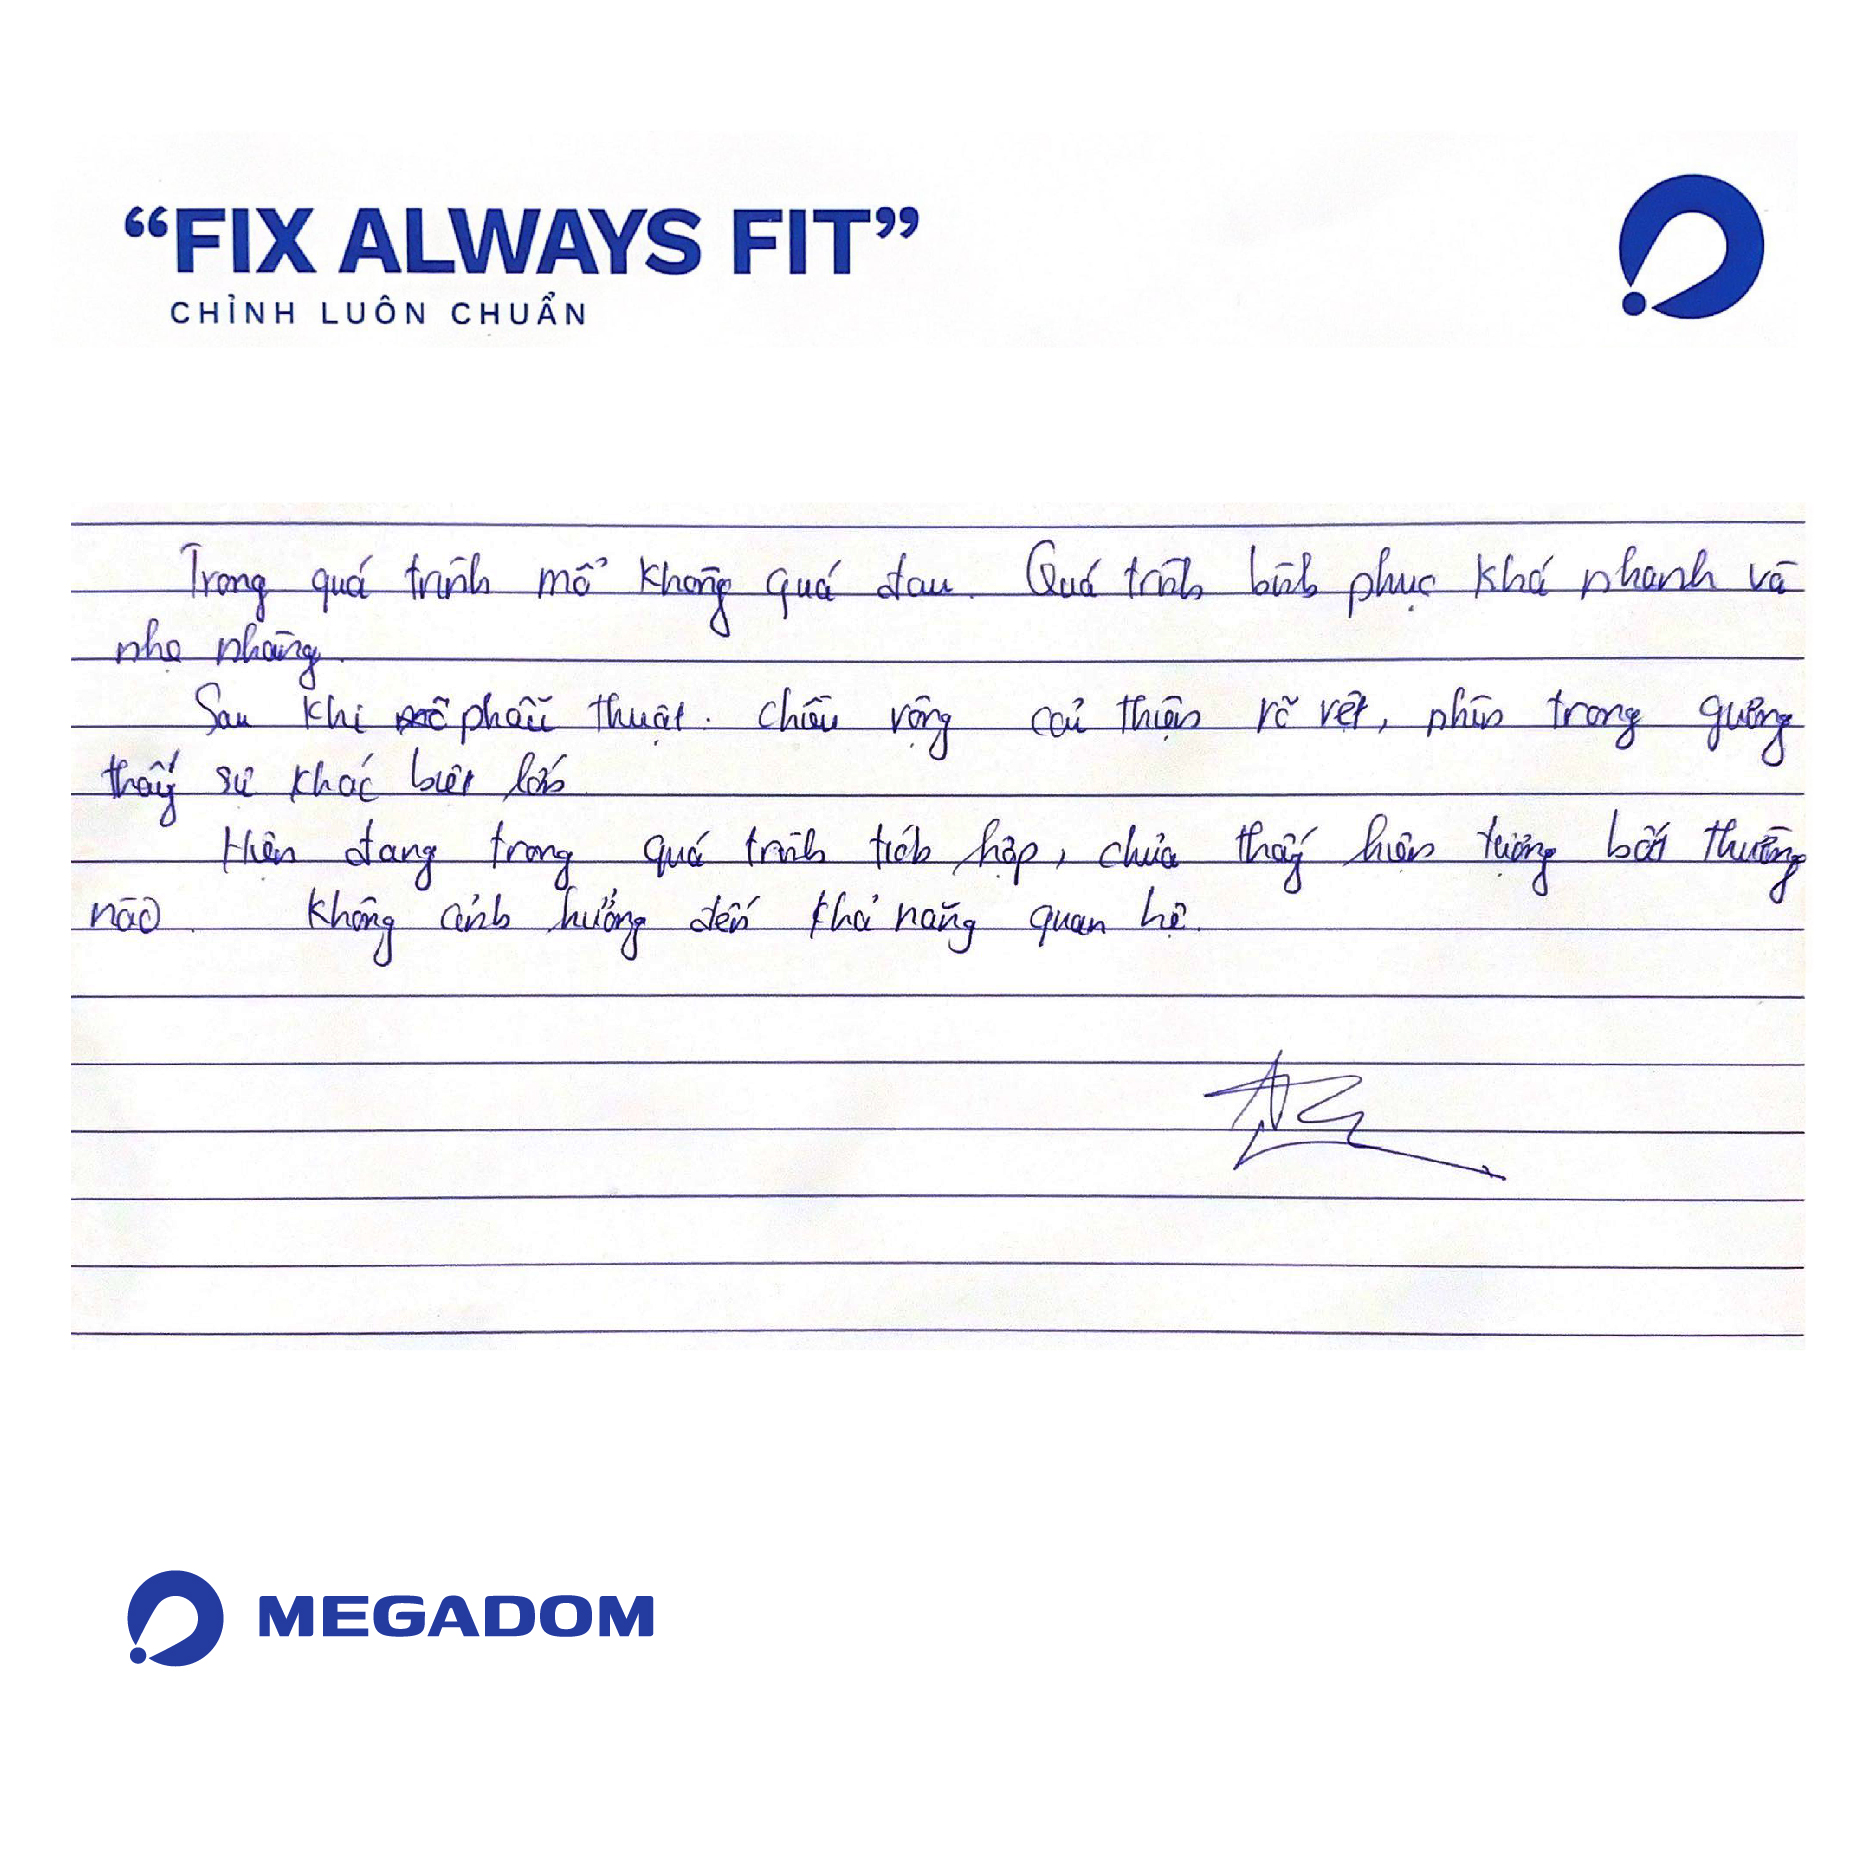 “FIX ALWAYS FIT”
CHỈNH LUÔN CHUẨN
Trong quá trình mổ không quá đau. Quá trình bình phục khá nhanh và
nhẹ nhàng.
Sau khi phẫu thuật. Chiều rộng cải thiện rõ rệt, nhìn trong gương
thấy sự khác biệt lớn
Hiện đang trong quá trình tích hợp, chưa thấy hiện tượng bất thường
nào. Không ảnh hưởng đến khả năng quan hệ.
MEGADOM